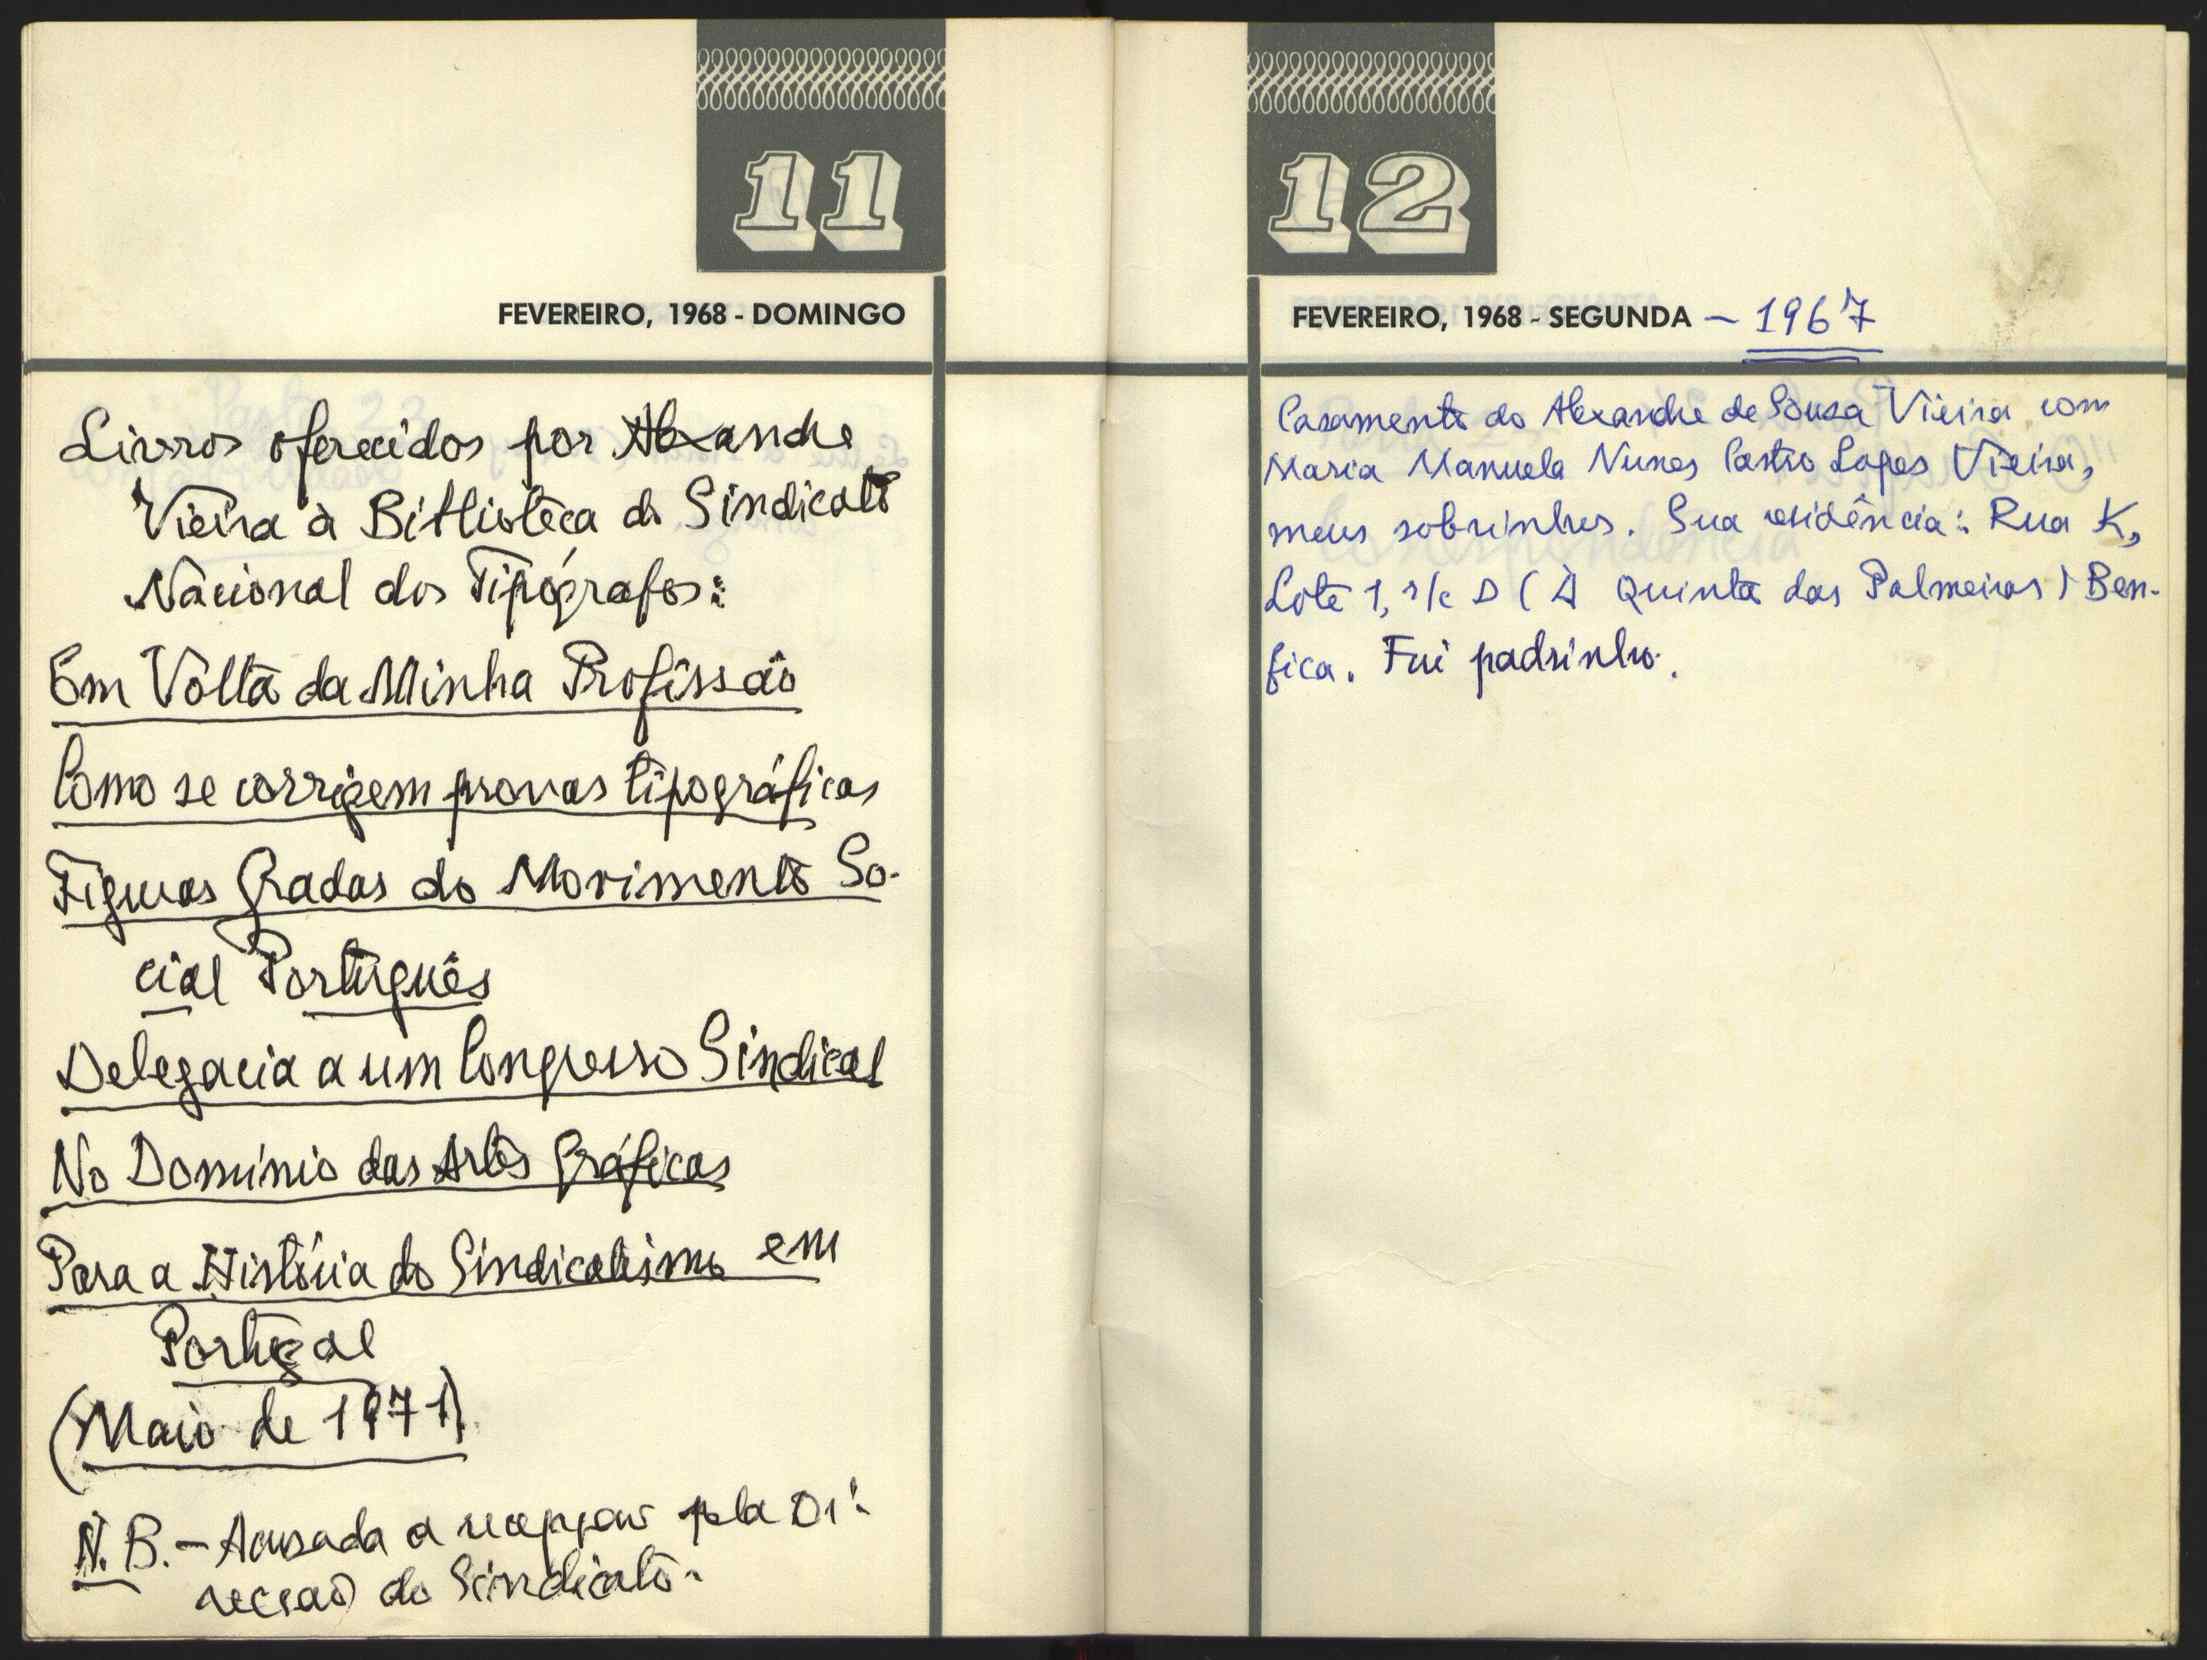 11
FEVEREIRO, 1968 - DOMINGO
Livros oferecidos por Alexandre
Vieira à Biblioteca do Sindicato
Nacional dos Tipógrafos:
Em Volta da Minha Profissão
Como se corrigem provas tipográficas
Figuras Gradas do Movimento So-
cial Português
Delegacia a um Congresso Sindical
No Domínio das Artes Gráficas
Para a História do Sindicalismo em
Portugal
(Maio de 1971)
N. B. - Acusada a recepção pela Di-
recção do Sindicato.
12
FEVEREIRO, 1968 - SEGUNDA - 1967
Casamento do Alexandre de Sousa Vieira com
Maria Manuela Nunes Castro Lopes Vieira,
meus sobrinhos. Sua residência: Rua K,
Lote 1, r/c D (À Quinta das Palmeiras) Ben-
fica. Fui padrinho.